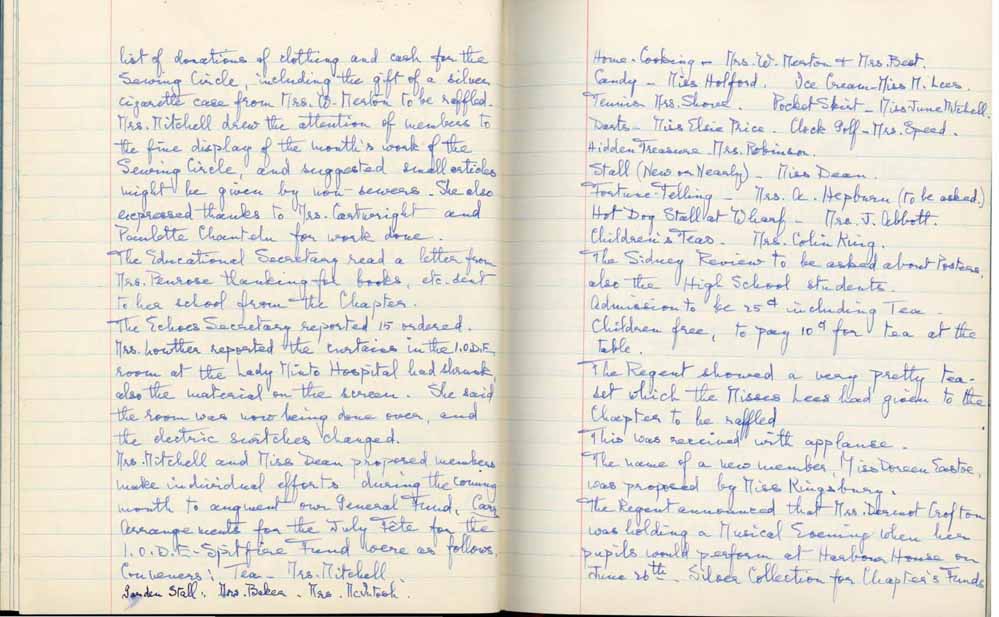 list of donations of clothing and cash for the
Sewing Circle, including the gift of a silver
cigarette case from Mrs. W. Merton to be raffled.
Mrs. Mitchell drew the attention of members to
the fine display of the month's work of the
Sewing Circle, and suggested small articles
might be given by non-sewers. She also
expressed thanks to Mrs. Cartwright and
Paulette Chanteln for work done.
The Educational Secretary read a letter from
Mrs. Penrose thanking for books, etc. sent
to her school from the Chapter.
The Echoes Secretary reported 15 ordered.
Mrs. Lowther reported the curtains in the I.O.D.E.
room at the Lady Minto Hospital had shrunk,
also the material on the screen. She said
the room was now being done over, and
the electric switches changed.
Mrs. Mitchell and Miss Dean proposed members
make individual efforts during the coming
month to augment our General Fund,
Arrangements for the July Fête for the
I.O.D.E. - Spitfire Fund were as follows,
Conveners: Tea - Mrs. Mitchell.
Garden Stall: Mrs. Baker - Mrs. McIntosh.
Home-Cooking - Mrs. W. Merton & Mrs. Best.
Candy - Miss Holford. Ice Cream - Miss M. Lees.
Tennis Mrs. Shove. Pocket Skirt - Miss June Mitchell.
Darts - Miss Elsie Price. Clock Golf - Mrs. Speed.
Hidden Treasure. Mrs. Robinson.
Stall (New or Nearly) - Miss Dean.
Fortune-Telling - Mrs. A. Hepburn (to be asked.)
Hot Dog Stall at Wharf - Mrs. J. Abbott.
Children's Teas. Mrs. Colin King.
The Sidney Review to be asked about Posters,
also the High School students.
Admission to be 25¢ including Tea.
Children free, to pay 10¢ for tea at the
table.
The Regent showed a very pretty tea-
set which the Misses Lees had given to the
Chapter to be raffled
This was received with applause.
The name of a new member, Miss Doreen Eastoe,
was proposed by Miss Kingsbury.
The Regent announced that Mrs. Dermot Crofton
was holding a Musical Evening when her
pupils would perform at Harbour House on
June 26th. Silver Collection for Chapter's Funds